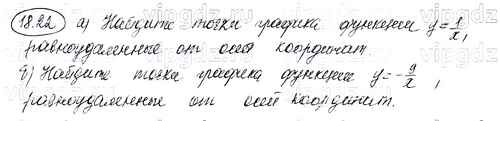 18.22 а) Найдите точки графика функции y = 1/x,
равноудаленные от осей координат.
б) Найдите точки графика функции y = -9/x,
равноудаленные от осей координат.